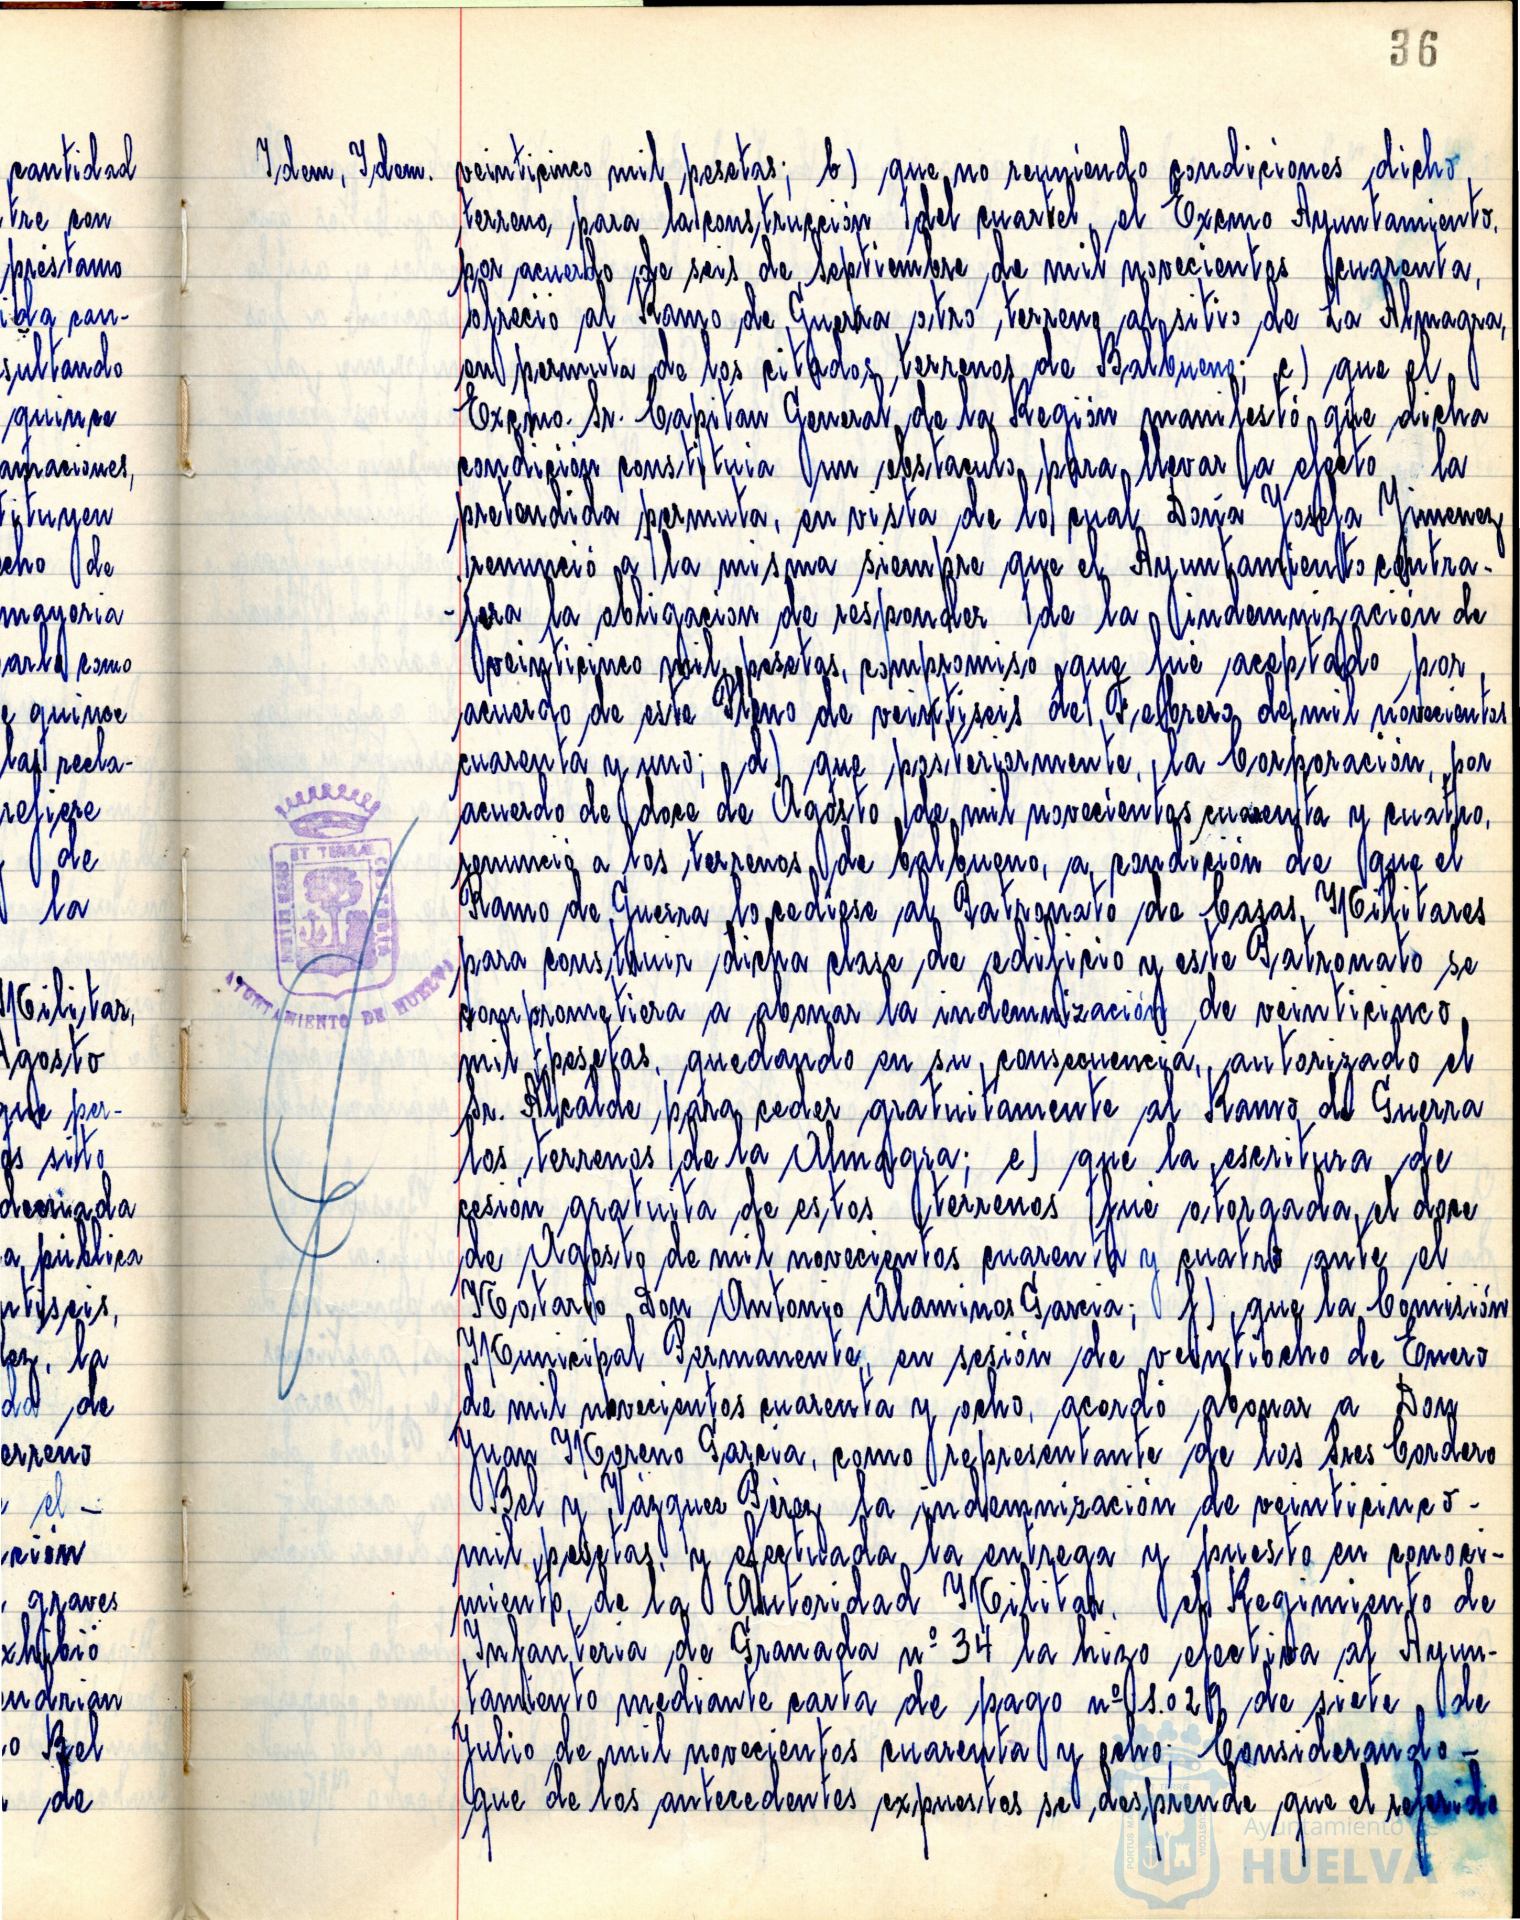 36
cantidad
tre con
préstamo
ida can-
sultando
quince
amaciones,
tituyen
cho de
mayoria
arla como
e quince
las recla-
refiere
de
la
Militar,
Agosto
que per-
os sitto
denciada
a pública
ntiseis,
ez, la
da de
erreno
el -
ción
graves
xhibió
endrian
o Bel
de
Idem, Idem.
veinticinco mil pesetas; b) que no reuniendo condiciones dicho
terreno, para la construcción del cuartel, el Excmo Ayuntamiento,
por acuerdo de seis de septiembre de mil novecientos cuarenta,
ofreció al Ramo de Guerra otro terreno al sitio de La Almagra,
en permuta de los citados terrenos de Balbueno; c) que el
Excmo. Sr. Capitan General de la Región manifestó que dicha
condición constituia un obstaculo para llevar a efecto la
pretendida permuta, en vista de lo cual Doña Josefa Jimenez
renunció a la misma siempre que el Ayuntamiento contra-
-jera la obligacion de responder de la indemnización de
veinticinco mil pesetas, compromiso que fué aceptado por
acuerdo de este Pleno de veintiseis de Febrero de mil novecientos
cuarenta y uno; d) que posteriormente, la Corporación, por
acuerdo de doce de Agosto de mil novecientos cuarenta y cuatro,
renunció a los terrenos de balbueno, a condición de que el
Ramo de Guerra lo cediese al Patronato de Casas Militares
para construir dicha clase de edificio y este Patronato se
comprometiera a abonar la indemnización de veinticinco
mil pesetas, quedando en su consecuencia, autorizado el
Sr. Alcalde para ceder gratuitamente al Ramo de Guerra
los terrenos de la Almagra; e) que la escritura de
cesión gratuita de estos terrenos fué otorgada el doce
de Agosto de mil novecientos cuarenta y cuatro ante el
Notario Don Antonio Alaminos Garcia; f) que la Comisión
Municipal Permanente, en sesión de veintiocho de Enero
de mil novecientos cuarenta y ocho, acordó abonar a Don
Juan Moreno Garcia, como representante de los Sres Cordero
Bel y Vázquez Pérez la indemnización de veinticinco -
mil pesetas, y efectuada la entrega y puesto en conoci-
miento de la Autoridad Militar, el Regimiento de
Infanteria de Granada nº 34 la hizo efectiva al Ayun-
tamiento mediante carta de pago nº de siete de
Julio de mil novecientos cuarenta y ocho; Considerando -
que de los antecedentes expuestos se desprende que el referido
ET TERRÆ CUSTODIA
AYUNTAMIENTO DE HUELVA
Ayuntamiento de
HUELVA